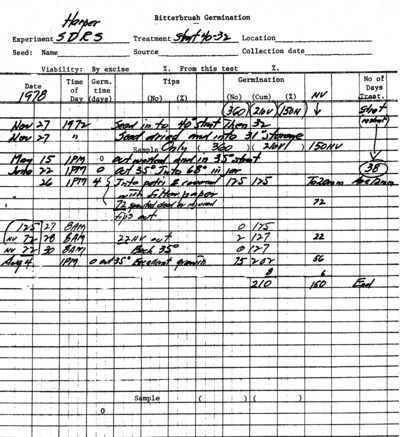 Harper
Bitterbrush Germination
Experiment SDRS Treatment Strat 40-32 Location
Seed: Name Source Collection date
Viability: By excise %. From this test %.
Date Time of Day Germ. time (days) Tips Germination NV No of Days Treat.
1978 (No) (%) (No) (Cum) (%)
(360) (210) (150N) ↓ Strat
Nov 27 1972 Seed in to 40° strat Then 32
Nov 27 " Seed dried and into 31° storage
Sample Only ( 360 ) ( 210V ) 150NV
May 15 1PM 0 out washed and in 35° strat
June 22 1PM 0 out 35° Into 68° in jar 38
26 1PM 4 Into petri & covered 125 125
with filter paper
72 dead or injured 72
tips out
125 27 8AM 0 125
NV 72 28 8AM 22 NV out 2 127 22
NV 22 30 8AM Back 35° 0 127
Aug 4 1PM 0 out 35° Excellent growth 75 202 56
8 6
210 150 End
Sample ( ) ( )
0